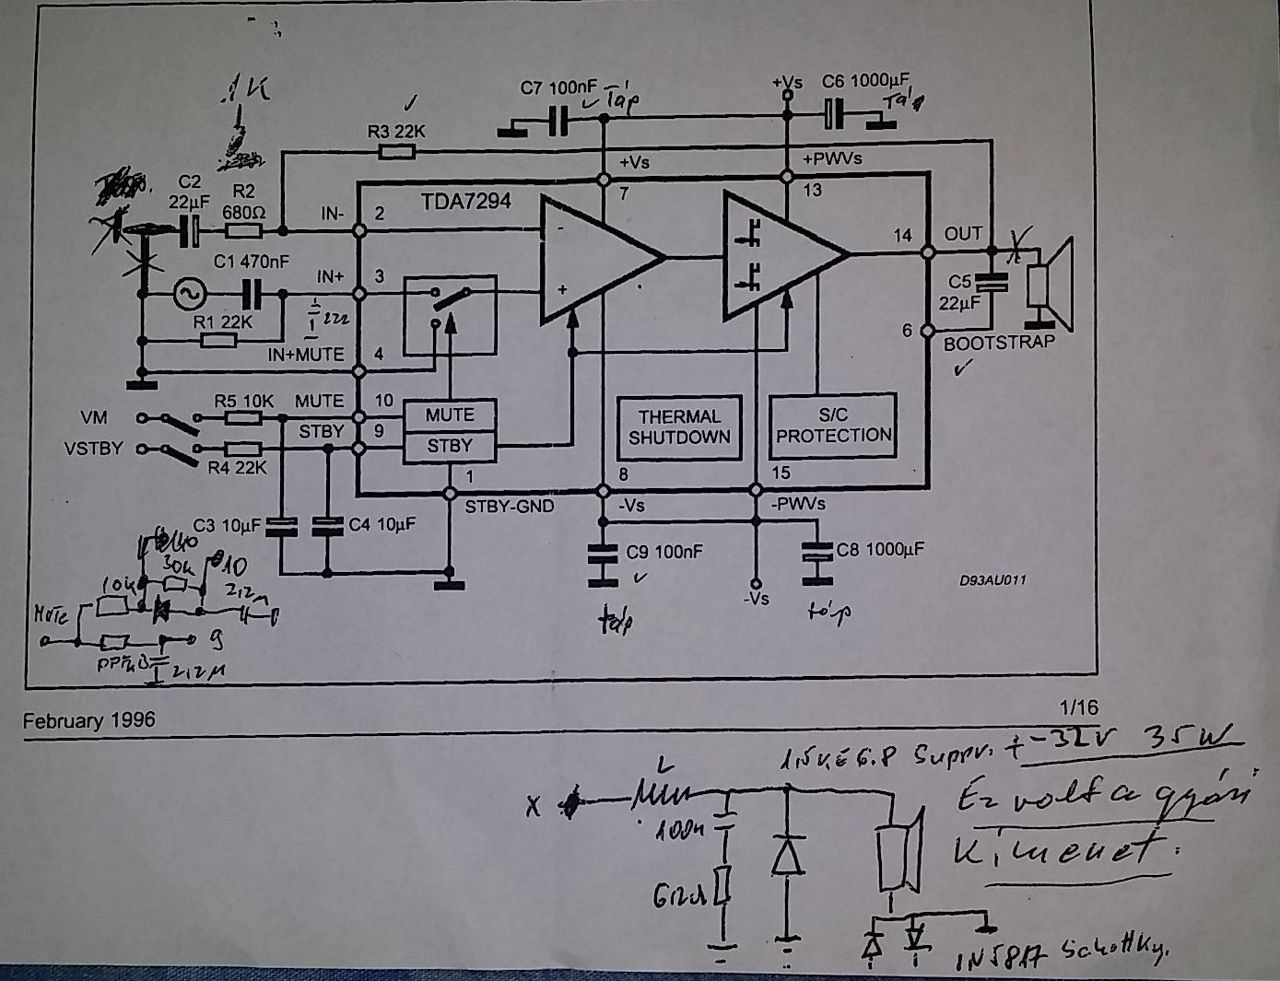 1K
C7 100nF Táp
+Vs
C6 1000µF
Táp
R3 22K
+Vs
+PWVs
C2
22µF
R2
680Ω
IN-
2
TDA7294
7
13
-
14
OUT
C1 470nF
IN+
3
+
C5
22µF
R1 22K
IN+MUTE
4
6
BOOTSTRAP
VM
R5 10K
MUTE
10
MUTE
THERMAL
SHUTDOWN
S/C
PROTECTION
VSTBY
R4 22K
STBY
9
STBY
1
8
15
STBY-GND
-Vs
-PWVs
C3 10µF
C4 10µF
C9 100nF
C8 1000µF
-Vs
D93AU011
táp
táp
10k
30k
10
2,2
Mute
9
2,2µ
February 1996
1/16
+-32V 35W
L
X
Ez volt a gyári
100n
Kimenet.
1N5817 Schottky.